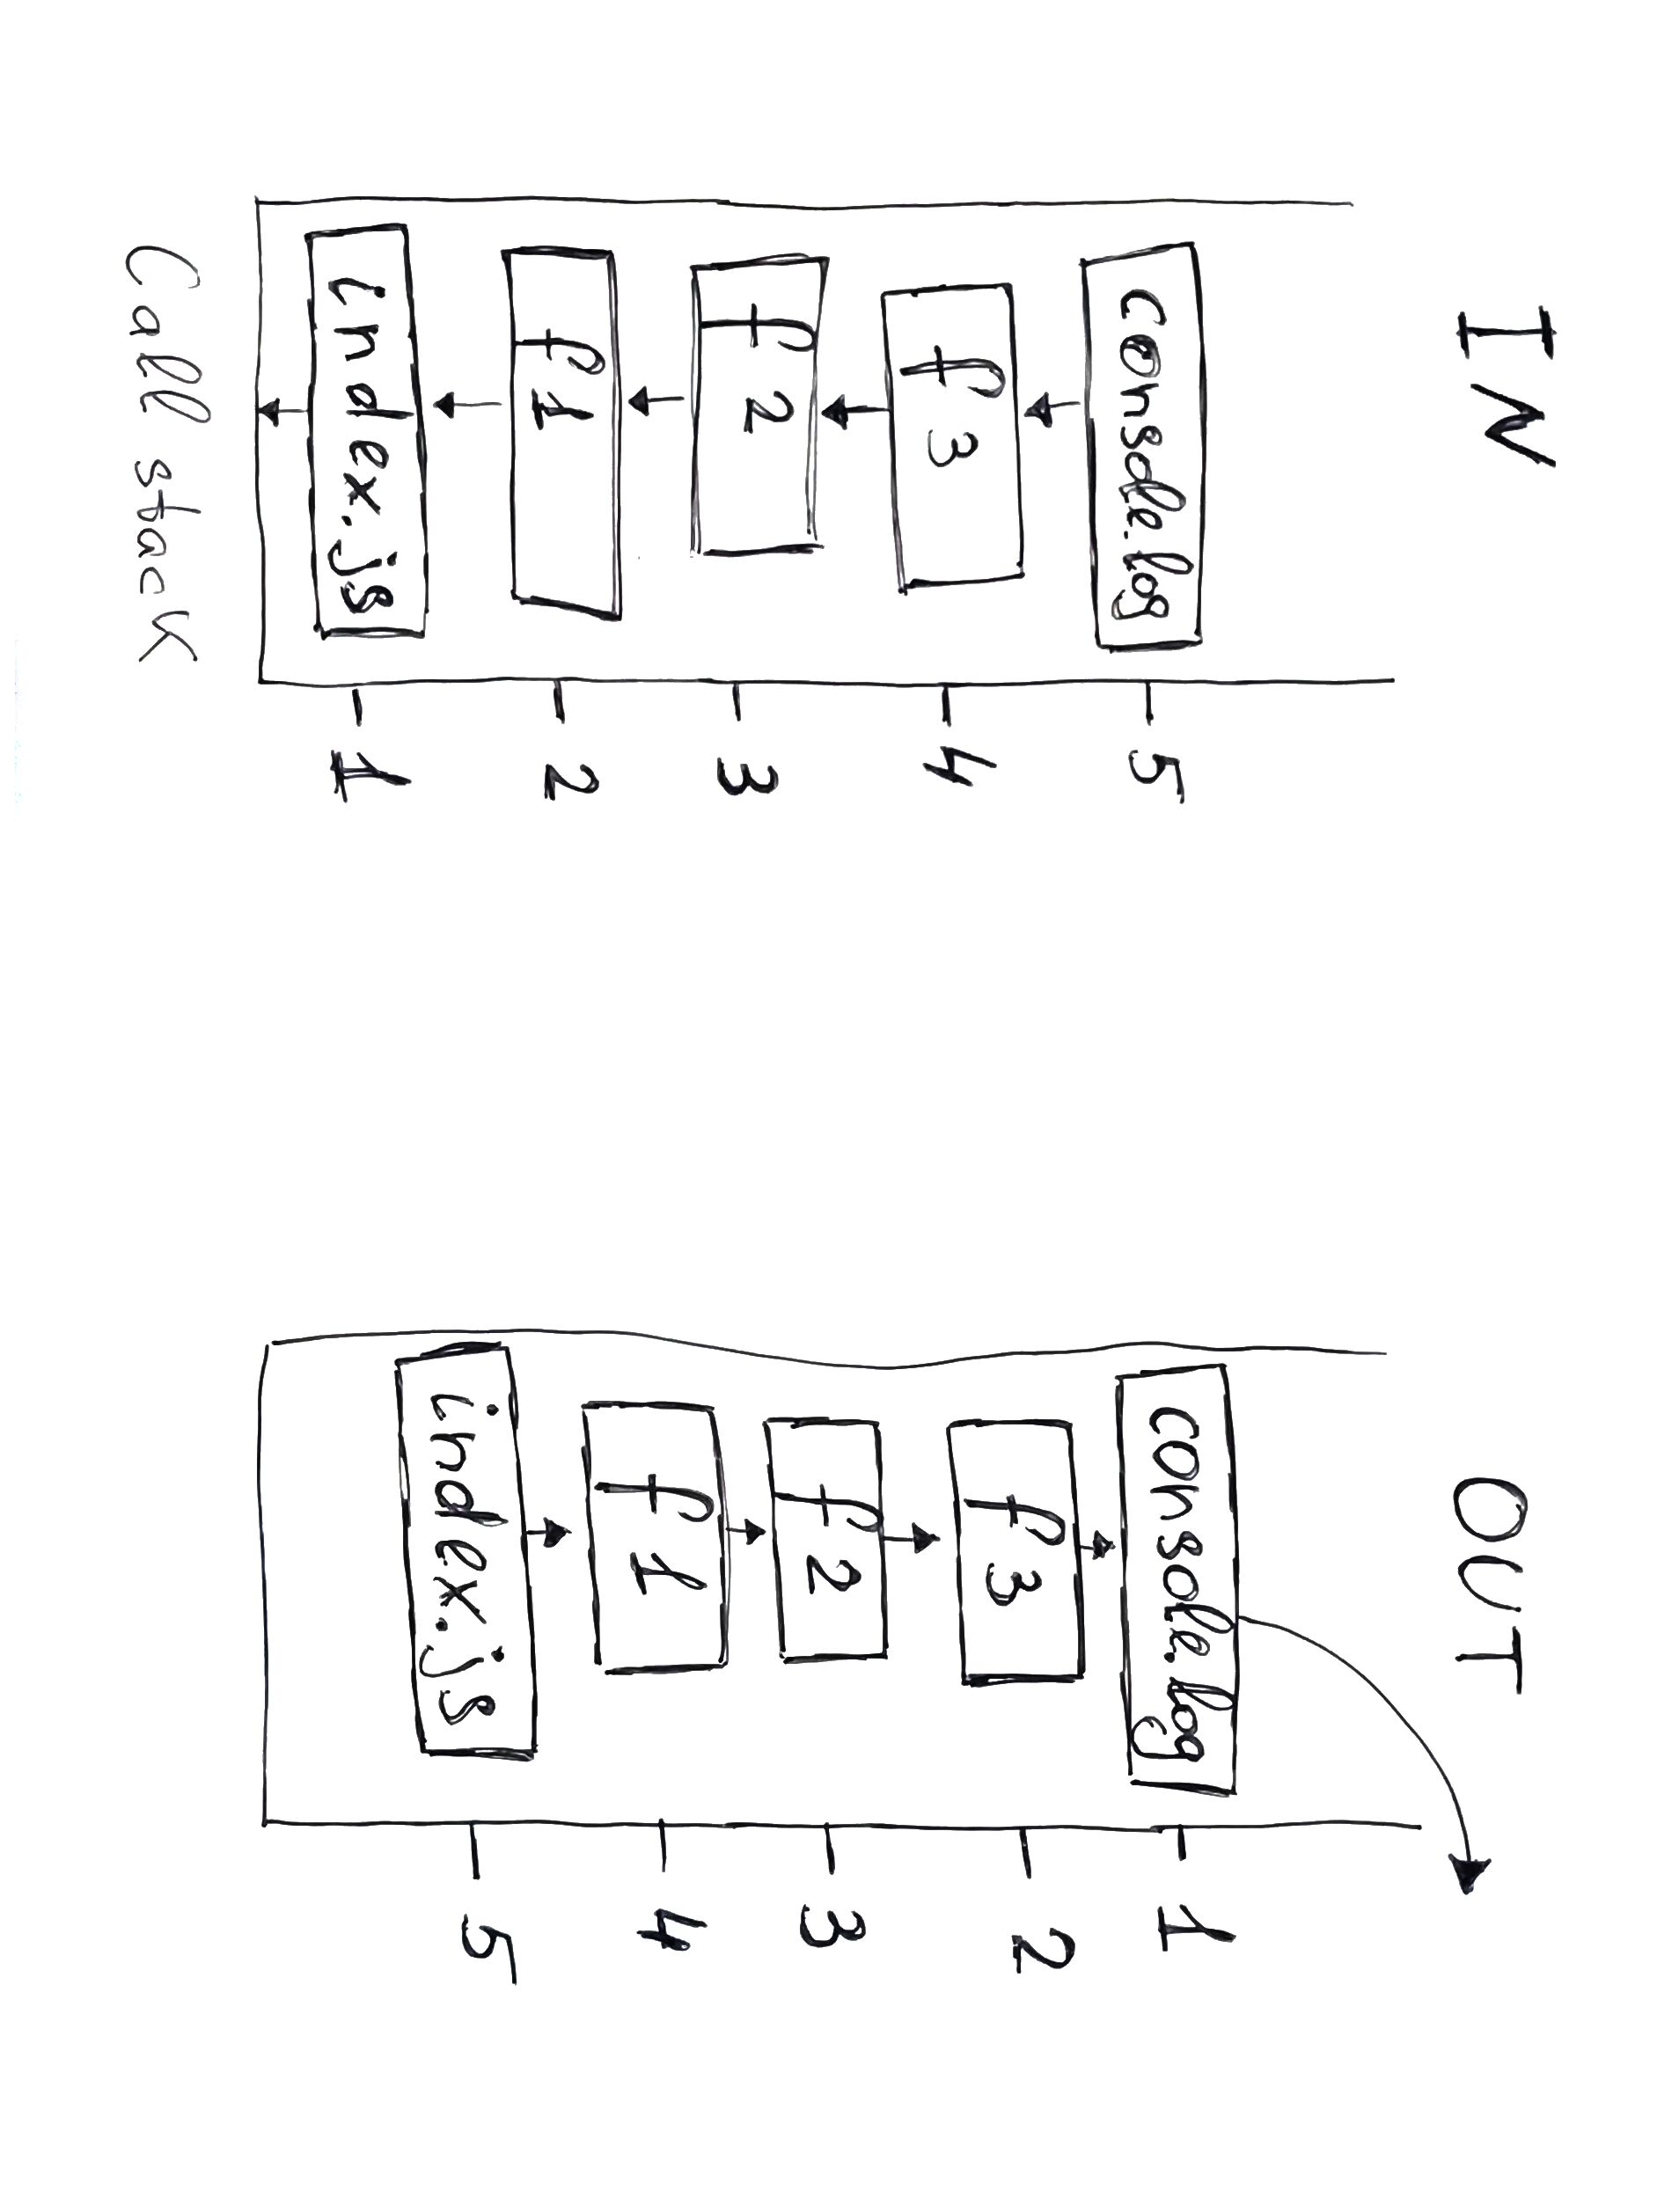 IN
console.log
5
f 3
4
f 2
3
f 1
2
index.js
1
Call stack
OUT
console.log
1
f 3
2
f 2
3
f 1
4
index.js
5